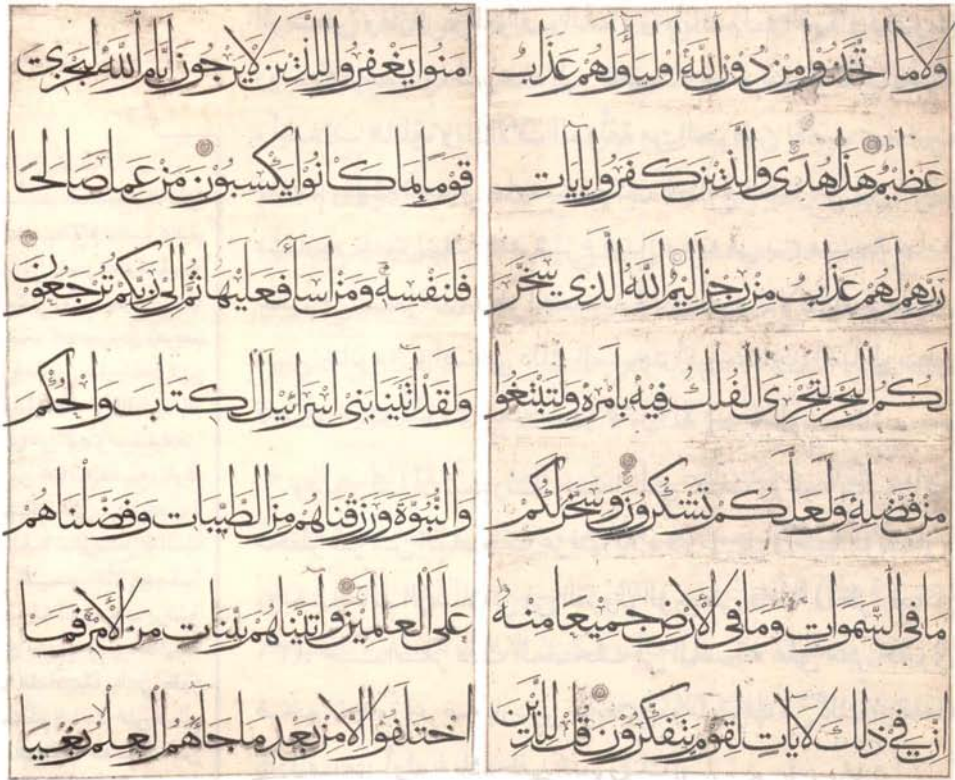 ولا ما اتخذوا من دون الله اوليا ولهم عذاب
عظيم هذا هدى والذين كفروا بايات
ربهم لهم عذاب من رجز اليم الله الذي سخر
لكم البحر لتجرى الفلك فيه بامره ولتبتغوا
من فضله ولعلكم تشكرون وسخر لكم
ما في السموات وما في الارض جميعا منه
ان في ذلك لايات لقوم يتفكرون قل للذين
آمنوا يغفروا للذين لا يرجون ايام الله ليجزى
قوما بما كانوا يكسبون من عمل صالحا
فلنفسه ومن اسا فعليها ثم الى ربكم ترجعون
ولقد اتينا بنى اسرائيل الكتاب والحكم
والنبوة ورزقناهم من الطيبات وفضلناهم
على العالمين واتيناهم بينات من الامر فما
اختلفوا الا من بعد ما جاهم العلم بغيا